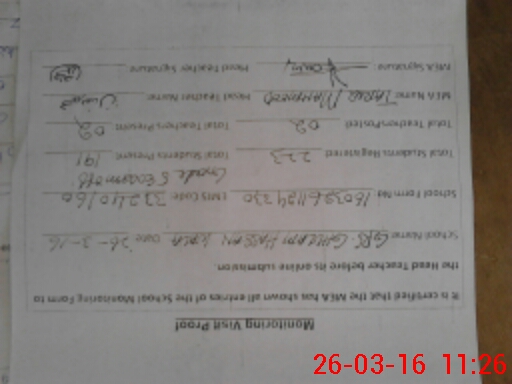 Monitoring Visit Proof
It is certified that the MEA has shown all entries of the School Monitoring Form to
the Head Teacher before its online submission.
School Name GPS GHULAM HASSAN Date 26-3-16
School Form No: EMIS Code: 37240160
Grade 5
Total Students Registered 223 Total Students Present 191
Total Teachers Posted 02 Total Teachers Present 02
MEA Name TARIQ MAHMOOD Head Teacher Name
MEA Signature Head Teacher Signature
26-03-16 11:26